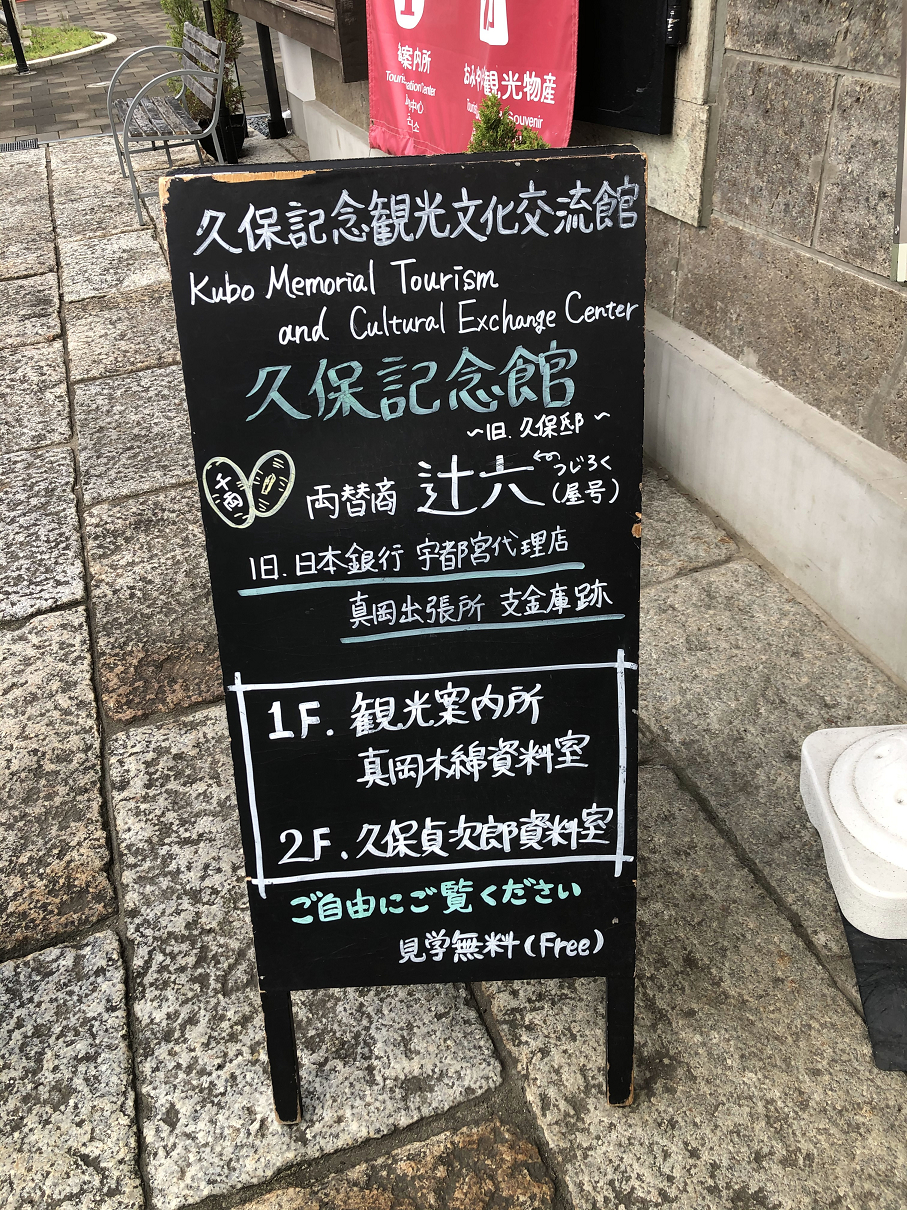 案内所
おみや観光物産
Souvenir
久保記念観光文化交流館
Kubo Memorial Tourism
and Cultural Exchange Center
久保記念館
〜旧.久保邸〜
千両
両替商 辻六 つじろく
(屋号)
旧.日本銀行 宇都宮代理店
真岡出張所 支金庫跡
1F. 観光案内所
真岡木綿資料室
2F. 久保貞次郎資料室
ご自由にご覧ください
見学無料(Free)